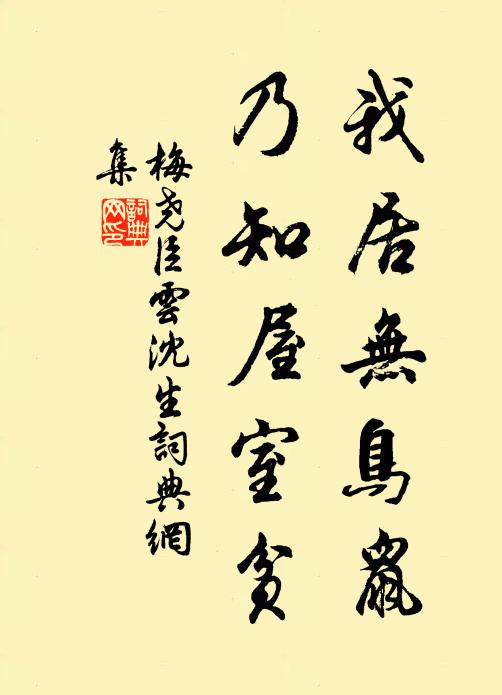 我居無鳥鼠
乃知屋室貧
梅堯臣雲沈生詞典網
集
詞典網印